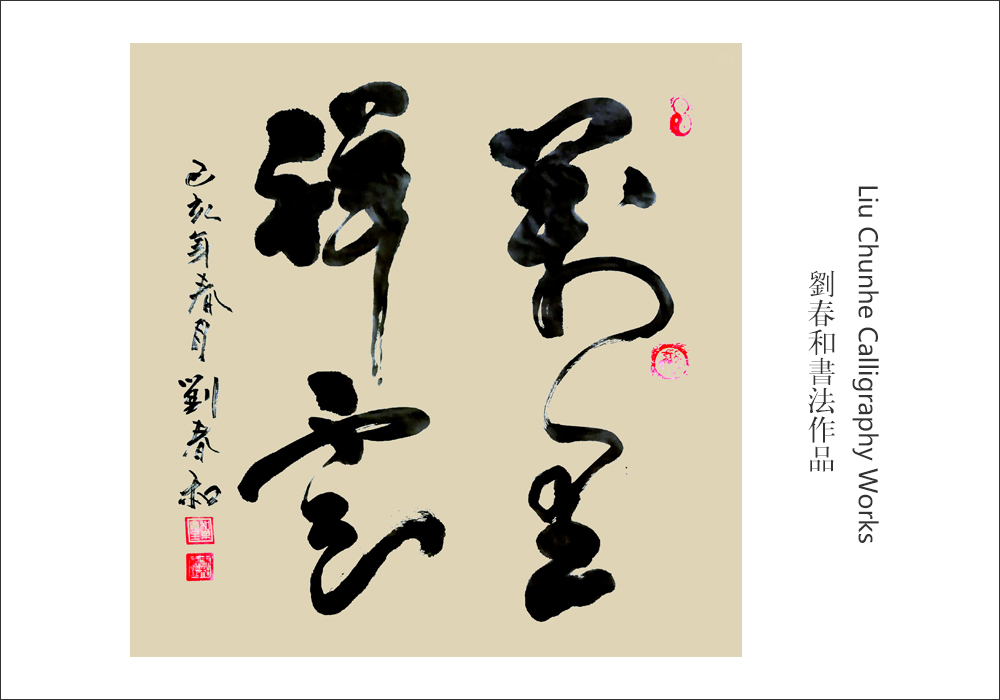 萬里
祥雲
己亥年春月劉春和
劉春和書法作品
Liu Chunhe Calligraphy Works